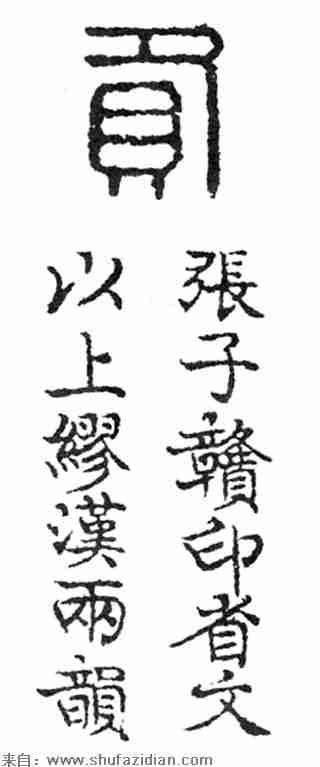 貢
張子贛印省文
以上繆漢兩韻
来自：www.shufazidian.com